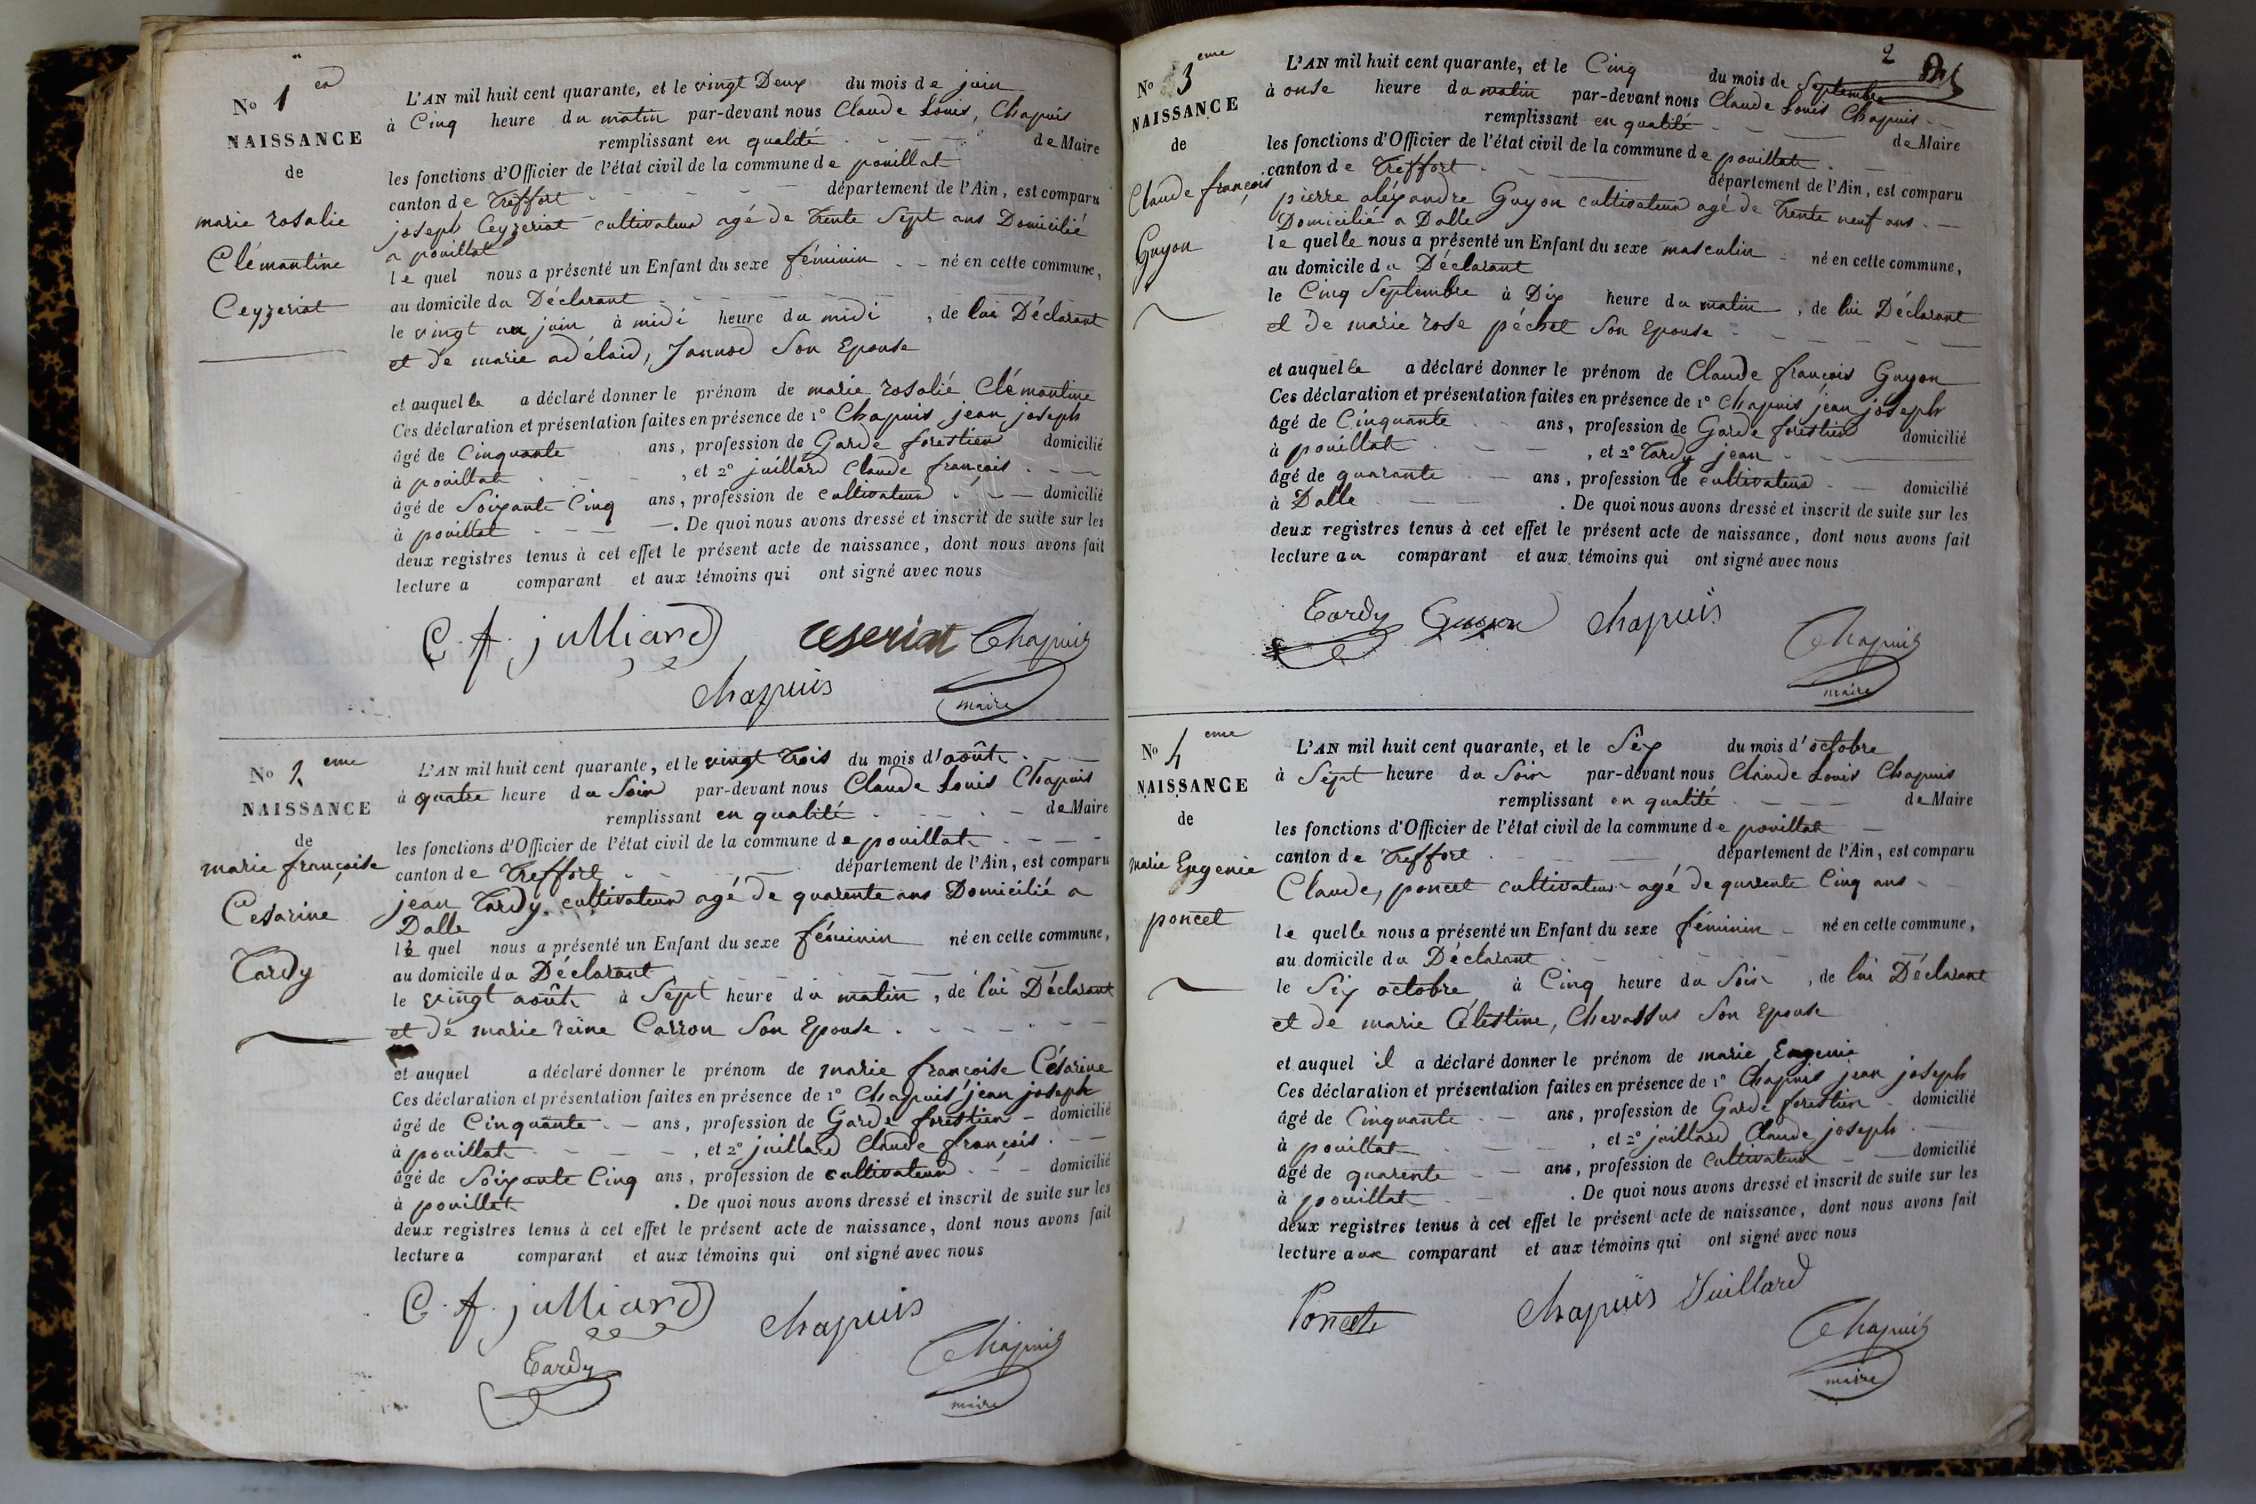 No 1er
NAISSANCE
de
marie rosalie
Clémantine
Ceyzeriat
L'AN mil huit cent quarante, et le vingt Deux du mois de juin
à Cinq heure du matin par-devant nous Claude Louis, Chapuis
remplissant en qualité de Maire
les fonctions d'Officier de l'état civil de la commune de pouillat
canton de Treffort département de l'Ain, est comparu
joseph Ceyzeriat cultivateur agé de Trente Sept ans Domicilié
a pouillat
le quel nous a présenté un Enfant du sexe féminin né en cette commune,
au domicile du Déclarant
le vingt un juin à midi heure du midi, de lui Déclarant
et de marie adélaid, Jannod Son Epouse
et auquelle a déclaré donner le prénom de marie rosalié Clémantine
Ces déclaration et présentation faites en présence de 1° Chapuis jean joseph
âgé de Cinquante ans, profession de Garde forestier domicilié
à pouillat, et 2° juillard Claude françois
âgé de Soixante Cinq ans, profession de cultivateur domicilié
à pouillat. De quoi nous avons dressé et inscrit de suite sur les
deux registres tenus à cet effet le présent acte de naissance, dont nous avons fait
lecture a comparant et aux témoins qui ont signé avec nous
C. f. julliard ceseriat Chapuis
chapuis maire
No 2eme
NAISSANCE
de
marie françoise
Cesarine
Tardy
L'AN mil huit cent quarante, et le vingt Trois du mois d'août
à quatre heure du Soir par-devant nous Claude Louis Chapuis
remplissant en qualité de Maire
les fonctions d'Officier de l'état civil de la commune de pouillat
canton de Treffort département de l'Ain, est comparu
jean Tardy cultivateur agé de quarente ans Domicilié a
Dalle
le quel nous a présenté un Enfant du sexe féminin né en cette commune,
au domicile du Déclarant
le vingt août à Sept heure du matin, de lui Déclarant
et de marie reine Carron Son Epouse
et auquel a déclaré donner le prénom de marie françoise Césarine
Ces déclaration et présentation faites en présence de 1° Chapuis jean joseph
âgé de Cinquante ans, profession de Garde forestier domicilié
à pouillat, et 2° juillard Claude françois
âgé de Soixante Cinq ans, profession de cultivateur domicilié
à pouillat. De quoi nous avons dressé et inscrit de suite sur les
deux registres tenus à cet effet le présent acte de naissance, dont nous avons fait
lecture a comparant et aux témoins qui ont signé avec nous
C. f. julliard chapuis Chapuis
Tardy maire
2
No 3eme
NAISSANCE
de
Claude françois
Guyon
L'AN mil huit cent quarante, et le Cinq du mois de Septembre
à onse heure du matin par-devant nous Claude Louis Chapuis
remplissant en qualité de Maire
les fonctions d'Officier de l'état civil de la commune de pouillat
canton de Treffort département de l'Ain, est comparu
pierre aléxandre Guyon cultivateur agé de Trente neuf ans
Domicilié a Dalle
le quelle nous a présenté un Enfant du sexe masculin né en cette commune,
au domicile du Déclarant
le Cinq Septembre à Dix heure du matin, de lui Déclarant
et de marie rose péchet Son Epouse
et auquelle a déclaré donner le prénom de Claude françois Guyon
Ces déclaration et présentation faites en présence de 1° Chapuis jean joseph
âgé de Cinquante ans, profession de Garde forestier domicilié
à pouillat, et 2° Tardy jean
âgé de quarante ans, profession de cultivateur domicilié
à Dalle. De quoi nous avons dressé et inscrit de suite sur les
deux registres tenus à cet effet le présent acte de naissance, dont nous avons fait
lecture au comparant et aux témoins qui ont signé avec nous
Tardy Guyon chapuis Chapuis
maire
No 4eme
NAISSANCE
de
marie Eugenie
poncet
L'AN mil huit cent quarante, et le Six du mois d'octobre
à Sept heure du Soir par-devant nous Claude Louis Chapuis
remplissant en qualité de Maire
les fonctions d'Officier de l'état civil de la commune de pouillat
canton de Treffort département de l'Ain, est comparu
Claude, poncet cultivateur agé de quarente Cinq ans
le quelle nous a présenté un Enfant du sexe féminin né en cette commune,
au domicile du Déclarant
le Six octobre à Cinq heure du Soir, de lui Déclarant
et de marie Célestine, Chevassus Son Epouse
et auquel il a déclaré donner le prénom de marie Eugenie
Ces déclaration et présentation faites en présence de 1° Chapuis jean joseph
âgé de Cinquante ans, profession de Garde forestier domicilié
à pouillat, et 2° juillard Claude joseph
âgé de quarente ans, profession de Cultivateur domicilié
à pouillat. De quoi nous avons dressé et inscrit de suite sur les
deux registres tenus à cet effet le présent acte de naissance, dont nous avons fait
lecture aux comparant et aux témoins qui ont signé avec nous
Poncet chapuis Juillard Chapuis
maire